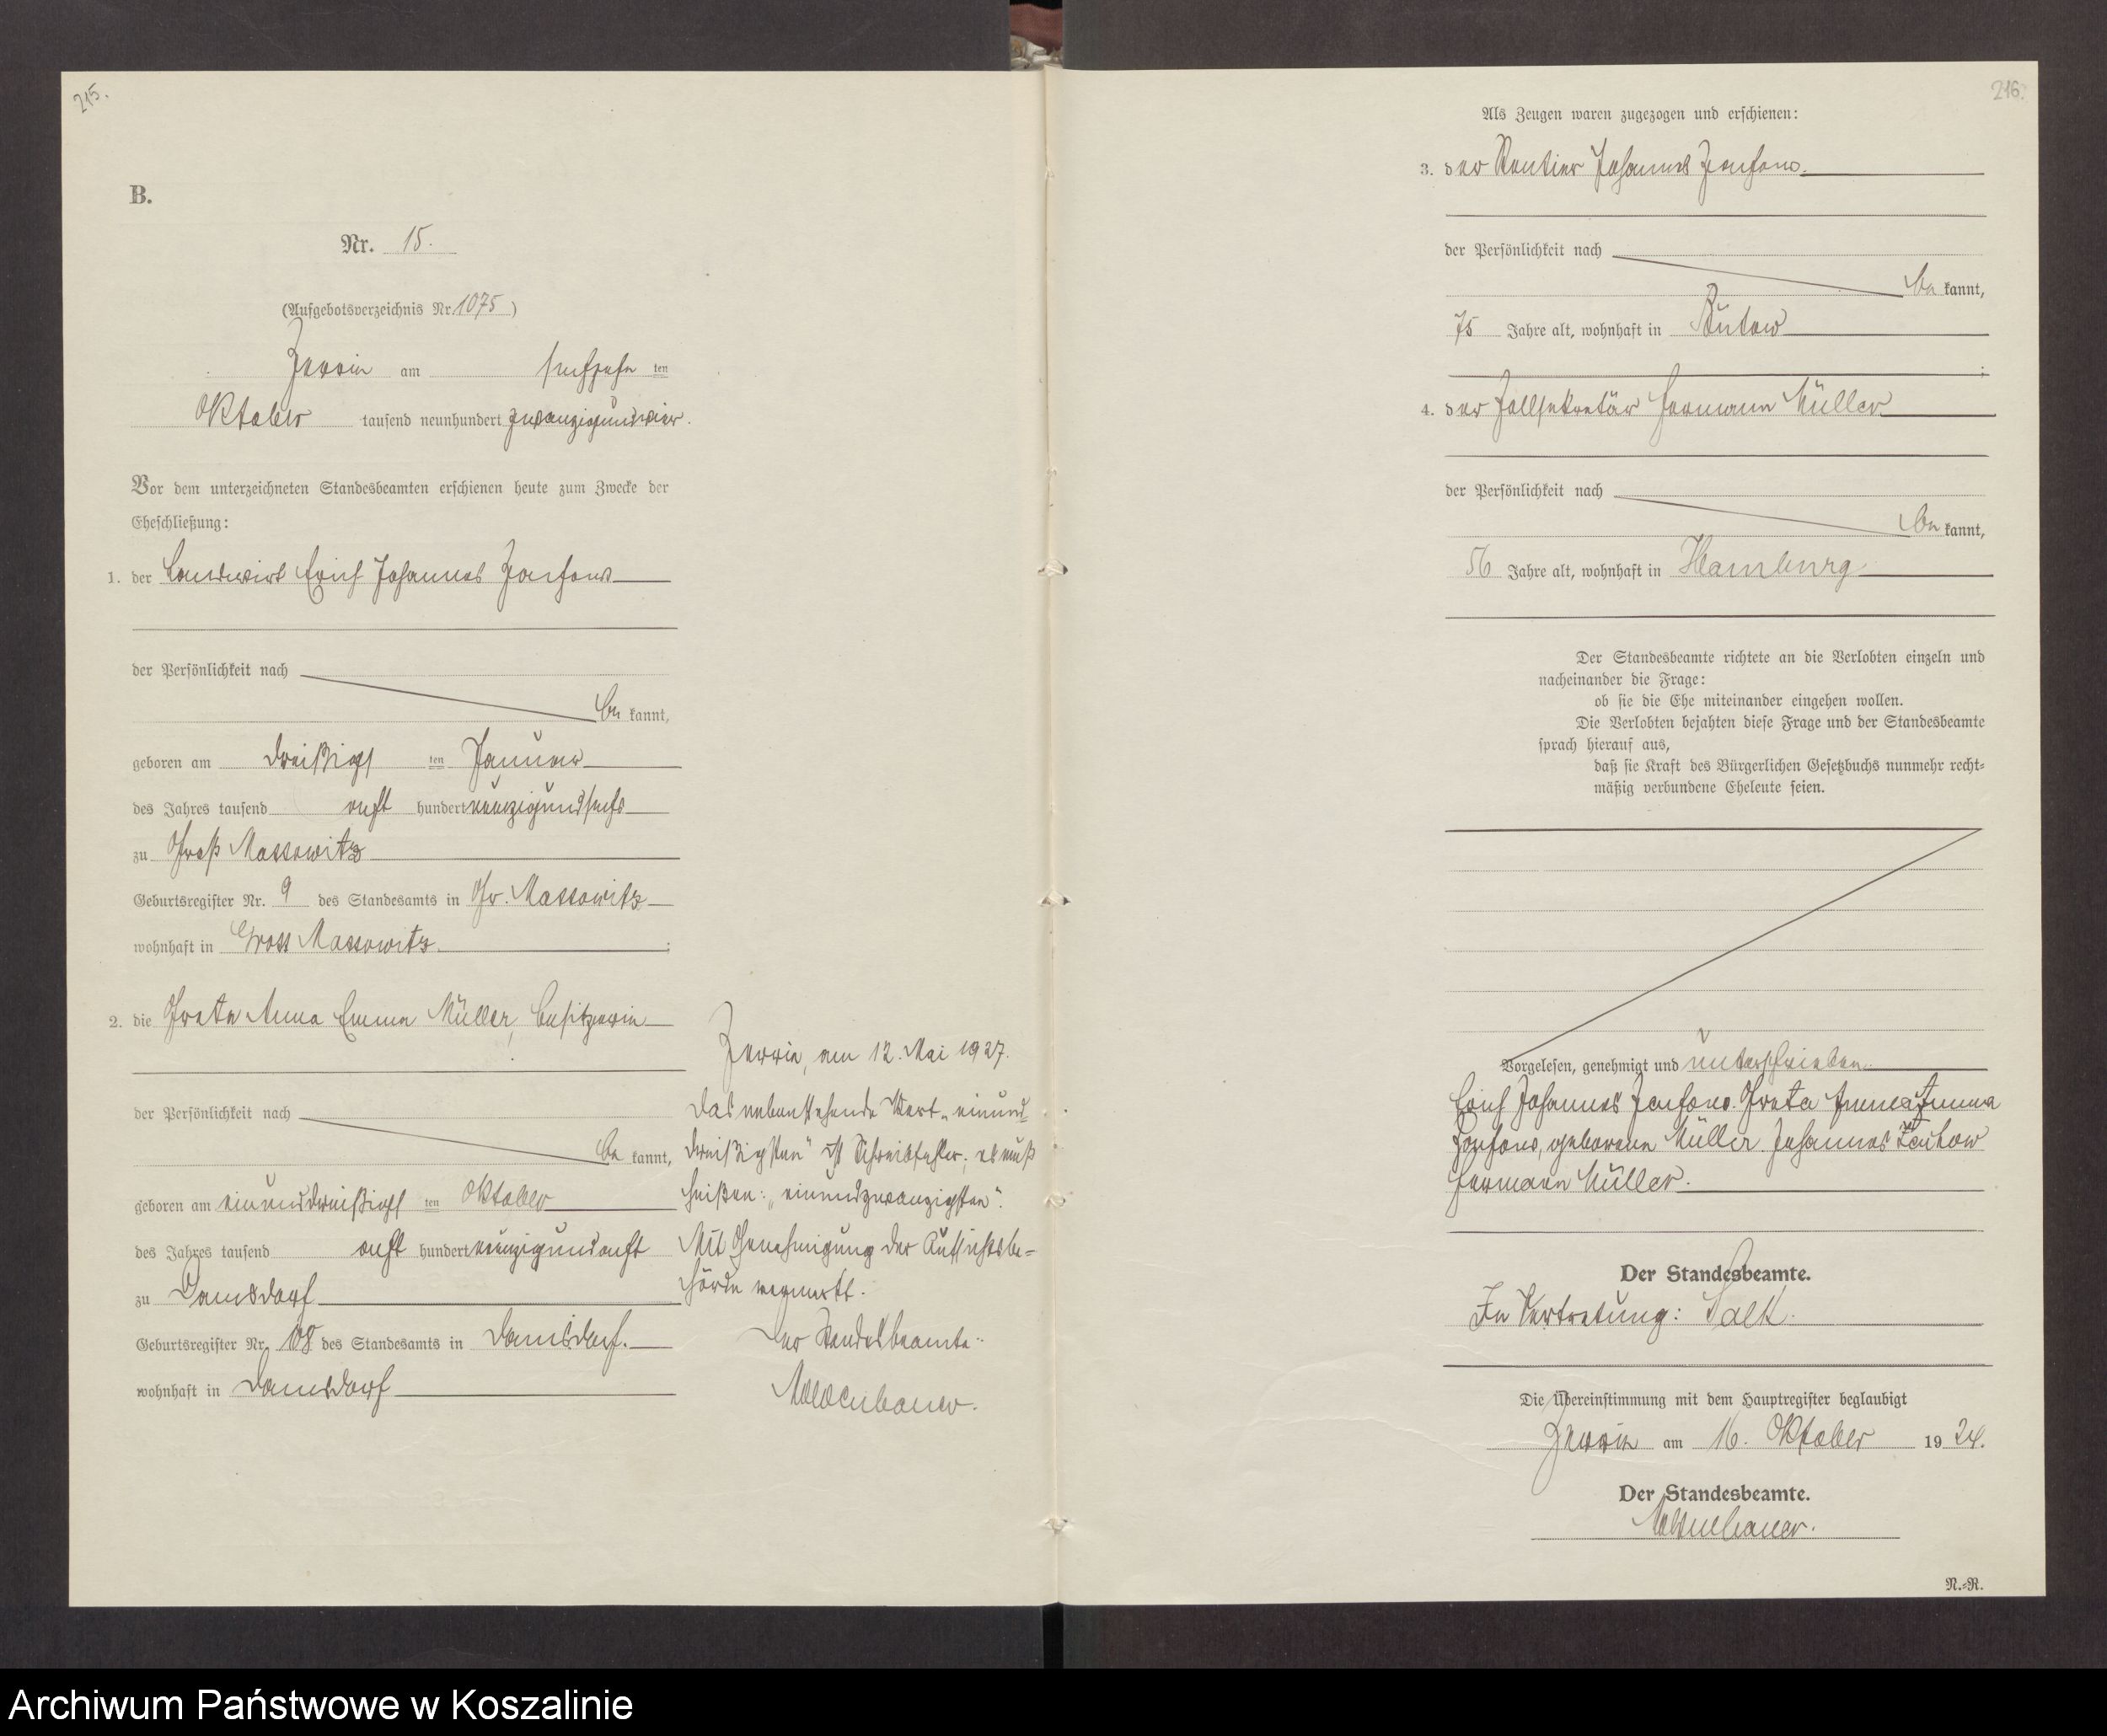 215.
B.
Nr. 15.
(Aufgebotsverzeichnis Nr. 1075)
Zerrin am sechzehn ten
Oktober tausend neunhundert zwanzigundvier.
Vor dem unterzeichneten Standesbeamten erschienen heute zum Zwecke der
Eheschließung:
1. der Landwirt Erich Johannes
der Persönlichkeit nach
be kannt,
geboren am dreißigst ten Januar
des Jahres tausend acht hundert neunzigundsechs
zu Groß Massowitz
Geburtsregister Nr. 9 des Standesamts in Gr. Massowitz
wohnhaft in Gross Massowitz.
2. die Greta Anna Emma Müller, Besitzerin
der Persönlichkeit nach
be kannt,
geboren am einunddreißigst ten Oktober
des Jahres tausend acht hundert neunzigundacht
zu Damsdorf
Geburtsregister Nr. 108 des Standesamts in Damsdorf.
wohnhaft in Damsdorf
Zerrin, am 12. Mai 1927.
Das nebenstehende Wort „einund-
dreißigsten" ist Schreibfehler; es muß
heißen: „einundzwanzigsten".
Mit Genehmigung der Aufsichtsbe-
hörde vermerkt.
Der Standesbeamte:
216.
Als Zeugen waren zugezogen und erschienen:
3. der Rentier Johannes
der Persönlichkeit nach
be kannt,
75 Jahre alt, wohnhaft in Bütow
;
4. der Zollsekretär Hermann Müller
der Persönlichkeit nach
be kannt,
56 Jahre alt, wohnhaft in Hamburg
Der Standesbeamte richtete an die Verlobten einzeln und
nacheinander die Frage:
ob sie die Ehe miteinander eingehen wollen.
Die Verlobten bejahten diese Frage und der Standesbeamte
sprach hierauf aus,
daß sie Kraft des Bürgerlichen Gesetzbuchs nunmehr recht-
mäßig verbundene Eheleute seien.
Vorgelesen, genehmigt und unterschrieben.
Erich Johannes Greta Anna Emma
geborene Müller. Johannes
Hermann Müller.
Der Standesbeamte.
In Vertretung:
Die Übereinstimmung mit dem Hauptregister beglaubigt
Zerrin am 16. Oktober 19 24.
Der Standesbeamte.
N.-R.
Archiwum Państwowe w Koszalinie